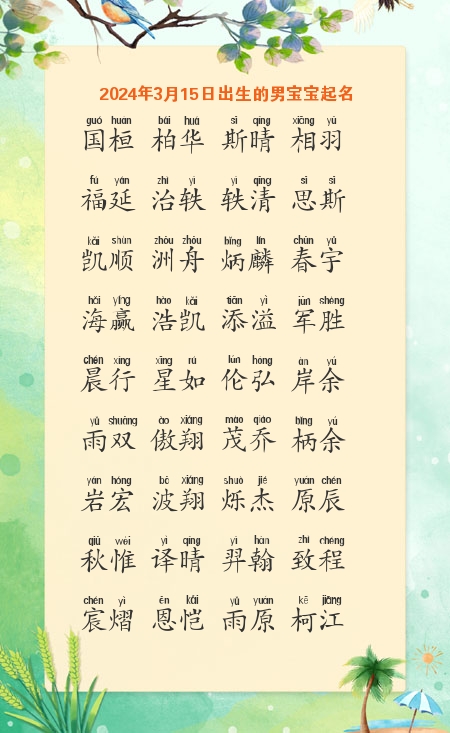 2024年3月15日出生的男宝宝起名
guó huán bǎi huá sī qíng xiāng yǔ
国桓 柏华 斯晴 相羽
fú yán zhì yì yì qīng sī sī
福延 治轶 轶清 思斯
kǎi shùn zhōu zhōu bǐng lín chūn yǔ
凯顺 洲舟 炳麟 春宇
hǎi yíng hào kǎi tiān yì jūn shèng
海赢 浩凯 添溢 军胜
chén xíng xīng rú lún hóng àn yú
晨行 星如 伦弘 岸余
yǔ shuāng ào xiáng mào qiáo bǐng yú
雨双 傲翔 茂乔 柄余
yán hóng bō xiáng shuò jié yuán chén
岩宏 波翔 烁杰 原辰
qiū wéi yì qíng yì hàn zhì chéng
秋惟 译晴 羿翰 致程
chén yì ēn kǎi yǔ yuán kē jiāng
宸熠 恩恺 雨原 柯江